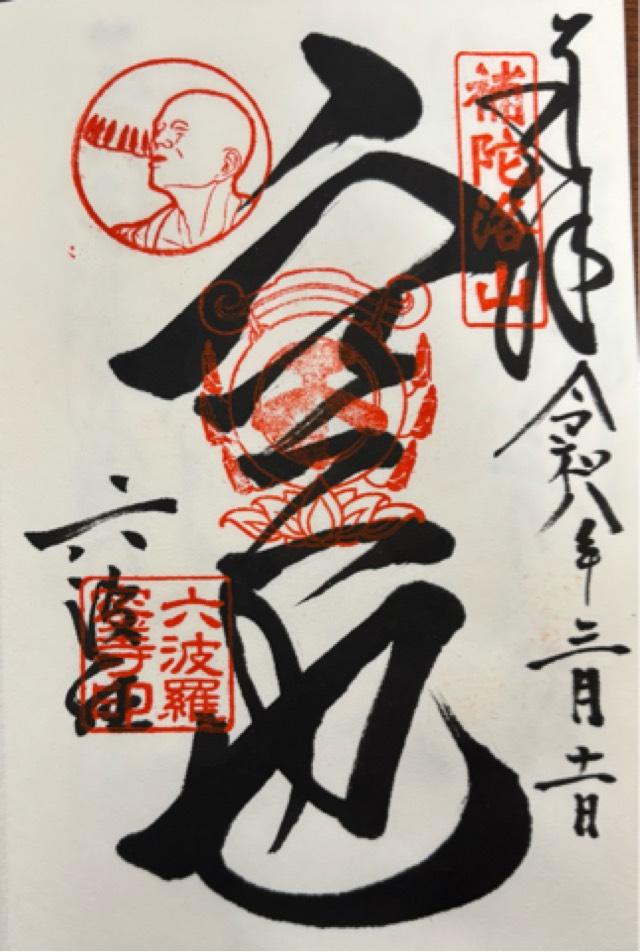 奉拝
補陀洛山
令和八年三月十一日
空也
六波羅
六波羅
蜜寺印